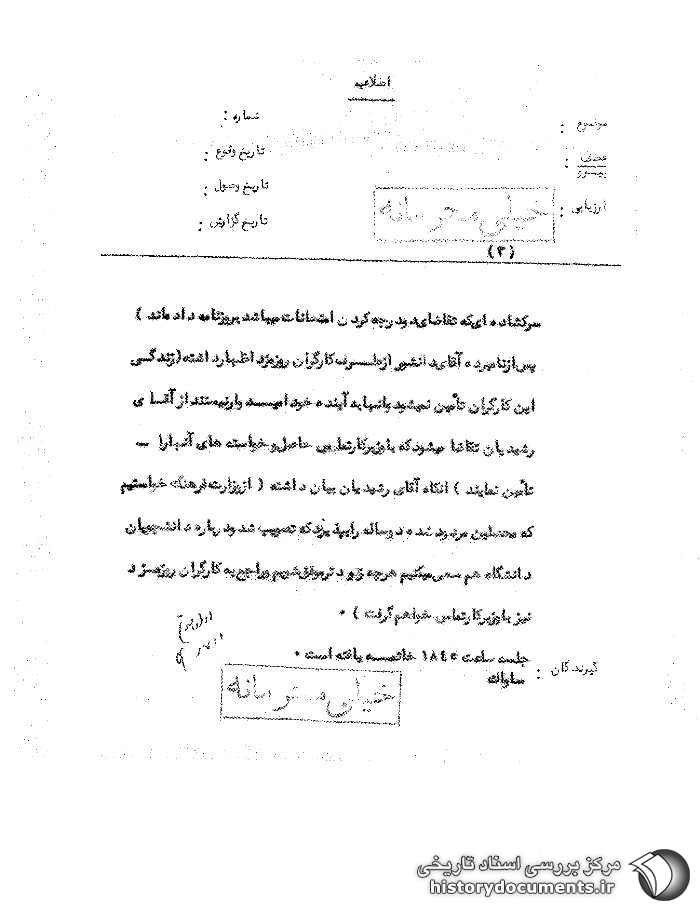 اطلاعیه
موضوع :
شماره :
تاریخ وقوع :
تاریخ وصول :
ارزیابی :
تاریخ گزارش :
خیلی محرمانه
(۳)
سرگشاده ای که تقاضای دو درجه کردن امتحانات میباشد بروزنامه داده اند )
پس از نامبرده آقای دانشور از طرف کارگران روزمزد اظهار داشته ( زندگی
این کارگران تأمین نمیشود و آنها به آینده خود امیدوار نیستند از آقای
رشیدیان تقاضا میشود که با وزیر کار تماس حاصل و خواسته های آنها را -
تأمین نمایند ) آنگاه آقای رشیدیان بیان داشته ( از وزارت فرهنگ خواستیم
که محصلین مردود شده دوساله را بپذیرد که تصویب شد و درباره دانشجویان
دانشگاه هم سعی میکنیم هرچه زودتر موفق شویم و راجع به کارگران روزمزد
نیز با وزیر کار تماس خواهم گرفت ) ۰
جلسه ساعت ۱۸۴۵ خاتمه یافته است ۰
گیرندگان :
ساواک
خیلی محرمانه
مرکز بررسی اسناد تاریخی
historydocuments.ir